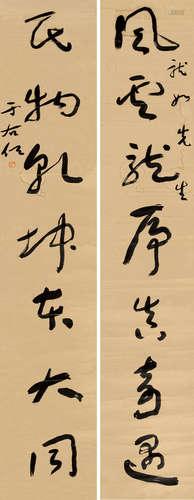 風雲龍虎真奇遇
龍如先生
民物乾坤本大同
于右任